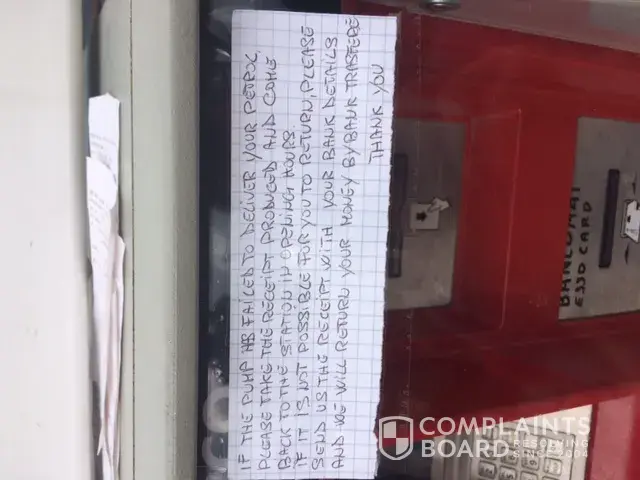 IF THE PUMP HAS FAILED TO DELIVER YOUR PETROL,
PLEASE TAKE THE RECEIPT PRODUCED AND COME
BACK TO THE STATION IN OPENING HOURS
IF IT IS NOT POSSIBLE FOR YOU TO RETURN, PLEASE
SEND US THE RECEIPT WITH YOUR BANK DETAILS
AND WE WILL RETURN YOUR MONEY BY BANK TRASFERE
THANK YOU
BANCOMAT
ESSO CARD
COMPLAINTS
BOARD
RESOLVING
SINCE 2004